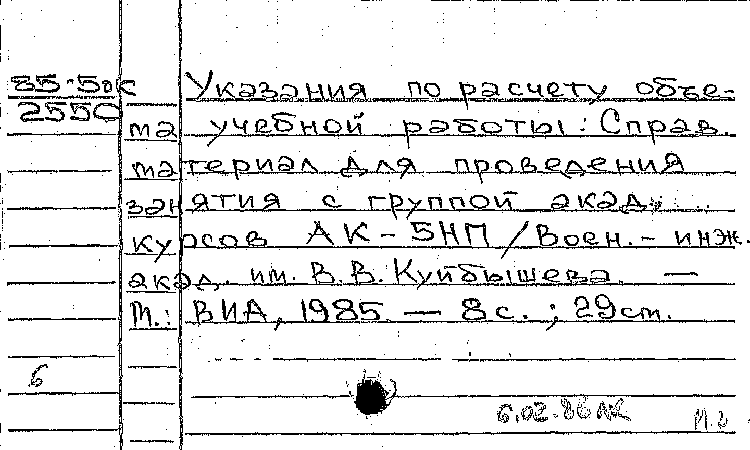 85-5дк
2550
Указания по расчету объе-
ма учебной работы: Справ.
материал для проведения
занятия с группой акад.
курсов АК-5НП/Воен.-инж.
акад. им. В.В.Куйбышева. —
М.: ВИА, 1985 — 8с.; 29см.
б
6.02.86